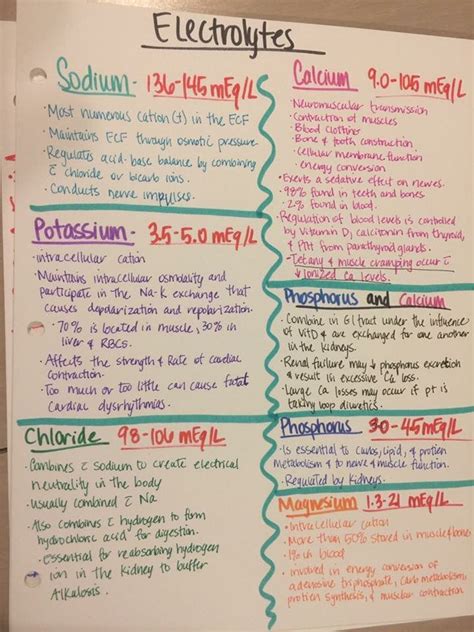 Electrolytes
Sodium - 136-145 mEq/L
· Most numerous cation (+) in the ECF
· Maintains ECF through osmotic pressure
· Regulates acid-base balance by combining
c̄ chloride or bicarb ions.
· Conducts nerve impulses.
Potassium - 3.5-5.0 mEq/L
· intracellular cation
· Maintains intracellular osmolality and
participate in the Na-K exchange that
causes depolarization and repolarization.
· 70% is located in muscle, 30% in
liver & RBCs.
· Affects the strength & Rate of cardiac
contraction.
· Too much or too little can cause fatal
cardiac dysrhythmias.
Chloride 98-106 mEq/L
· Combines c̄ sodium to create electrical
neutrality in the body
· usually combined c̄ Na
· Also combines c̄ hydrogen to form
hydrochloric acid for digestion.
· essential for reabsorbing hydrogen
ion in the kidney to buffer
Alkalosis.
Calcium 9.0-105 mEq/L
· Neuromuscular transmission
· Contraction of muscles
· Blood clotting
· Bone & tooth construction
· Cellular membrane function
· energy conversion
· Exerts a sedative effect on nerves.
· 98% found in teeth and bones
· 2% found in blood.
· Regulation of blood levels is controlled
by Vitamin D, calcitonin from thyroid,
& PTH from parathyroid glands.
- Tetany & muscle cramping occur c̄
↓ Ionized Ca levels.
Phosphorus and Calcium
· Combine in GI tract under the influence
of Vit D & are exchanged for one another
in the kidneys.
· Renal failure may ↓ phosphorus excretion
& result in excessive Ca loss.
· Large Ca losses may occur if pt is
taking loop diuretics.
Phosphorus 3.0-45 mEq/L
· Is essential to Carbs, lipid, & protien
metabolism & to nerve & muscle function.
· Regulated by kidneys.
Magnesium 1.3-21 mEq/L
· Intracellular cation
· More than 50% stored in muscle/bones
· 1% in blood
· involved in energy conversion of
adenosine triphosphate, carb metabolism,
protien synthesis, & muscular contraction